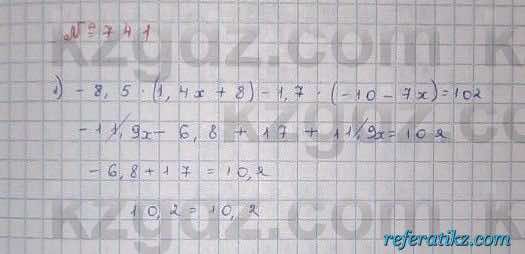 № 741
1) - 8,5 · (1,4x + 8) - 1,7 · (-10 - 7x) = 102
- 11,9x - 6,8 + 17 + 11,9x = 10 2
- 6,8 + 17 = 10,2
10,2 = 10,2
kzgdz.com
referatikz.com